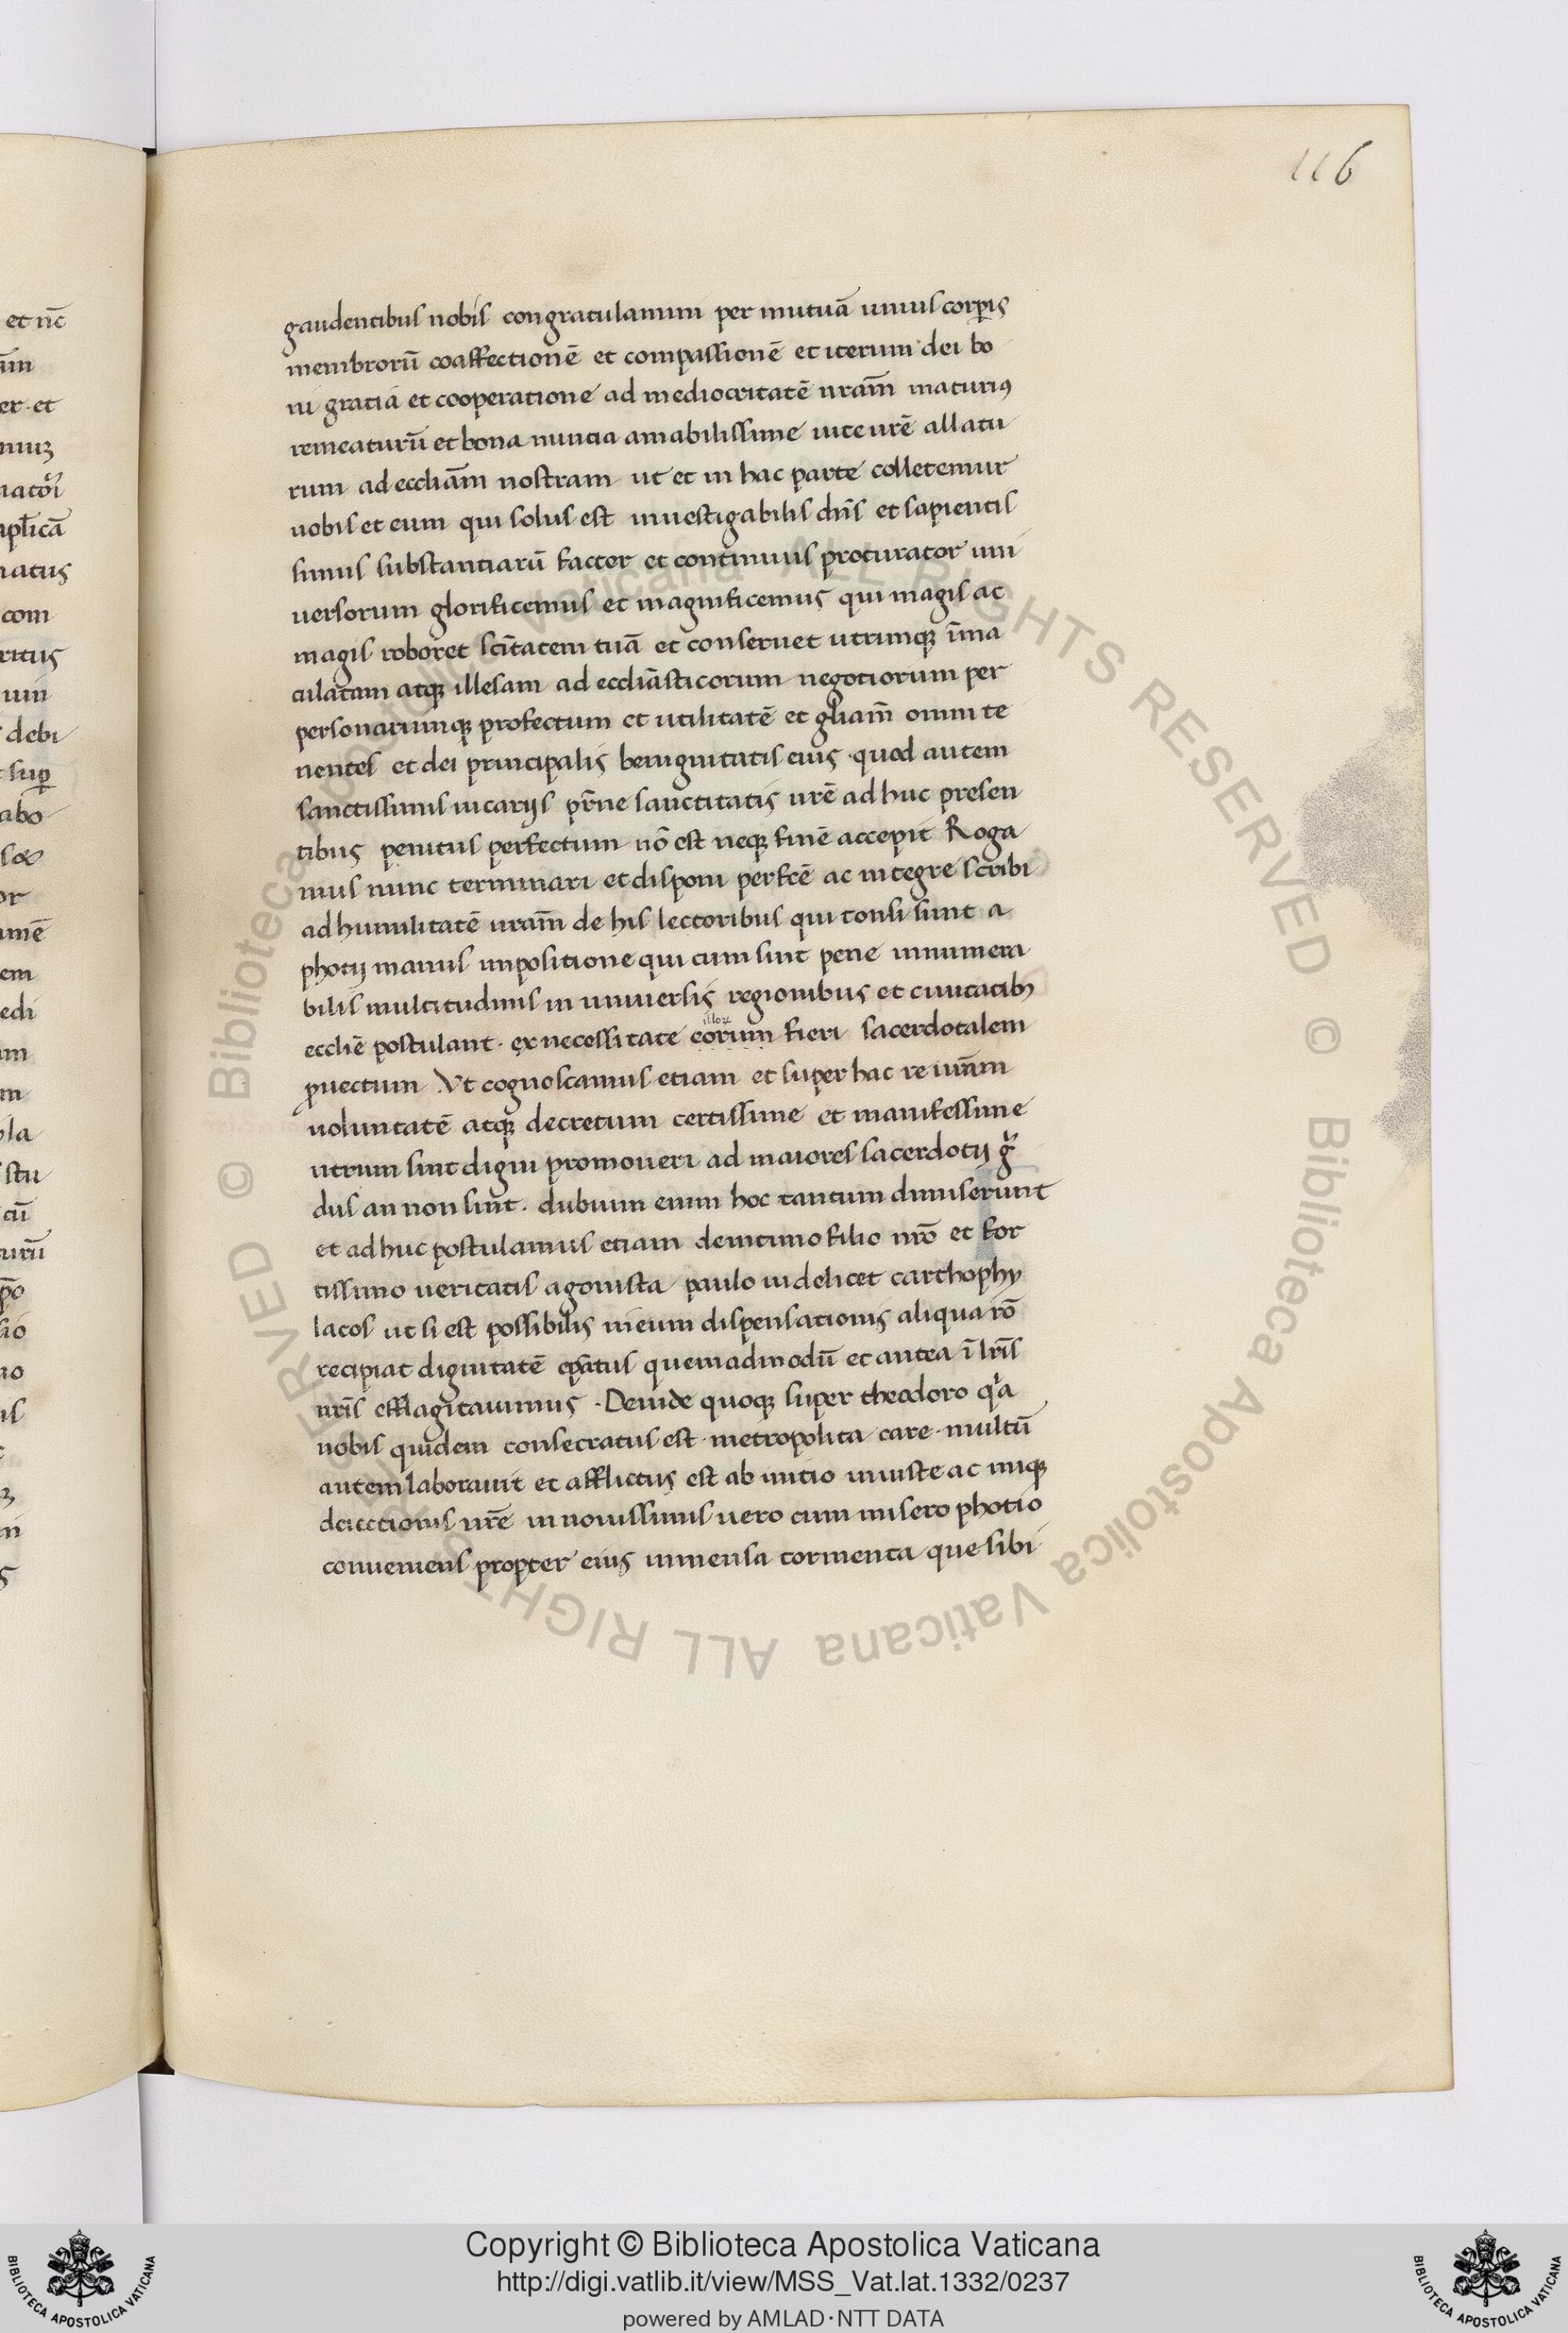 116
gaudentibus nobis congratulamini per mutuā unius corpis
membrorū coaffectionē et compassionē et iterum dei bo
ni gratia et cooperatione ad mediocritatē nram̄ maturius
remeaturū et bona nuncia amabilissime vite vrē allatu
rum ad eccliam̄ nostram ut et in hac parte colletemur
vobis et eum qui solus est investigabilis dn̄s et sapientis
simus substantiarū factor et continuus procurator uni
versorum glorificemus et magnificemus qui magis ac
magis roboret scītatem tuā et conservet utrimqꝫ īma
culatam atqꝫ illesam ad eccliāsticorum negotiorum per
personarumqꝫ profectum et utilitatē et gliam̄ omnite
nentes et dei principalis benignitatis eius · quod autem
sanctissimis vicarijs pr̄ne sanctitatis vrē ad huc presen
tibus penitus perfectum nō est neqꝫ finē accepit Roga
mus nunc terminari et disponi perfcē ac integre scribi
ad humilitatē nram̄ de his lectoribus qui tonsi sunt a
photij manus impositione qui cum sint pene innumera
bilis multitudinis in universis regionibus et civitatibꝫ
ecclīe postulant · ex necessitate eorum fieri sacerdotalem
illoꝝ
ꝓvectum Vt cognoscamus etiam et super hac re vrām
voluntatē atqꝫ decretum certissime et manifessime
utrum sint digni promoveri ad maiores sacerdotij gͣ
dus an non sint . dubium enim hoc tantum dimiserunt
et ad huc postulamus etiam de intimo filio nrō et for
tissimo veritatis agonista paulo videlicet carthophy
lacos ut si est possibilis in eum dispensationis aliqua rō
recipiat dignitatē epātus quemadmodū et antea ī lrīs
nrīs efflagitavimus · Deinde quoqꝫ super theodoro qͥa
nobis quidem consecratus est · metropolita care · multū
autem laboravit et afflictus est ab initio iniuste ac iniqꝫ
deiectionis nrē in novissimis vero cum misero photio
conveniens propter eius immensa tormenta que sibi
Copyright © Biblioteca Apostolica Vaticana
http://digi.vatlib.it/view/MSS_Vat.lat.1332/0237
powered by AMLAD·NTT DATA